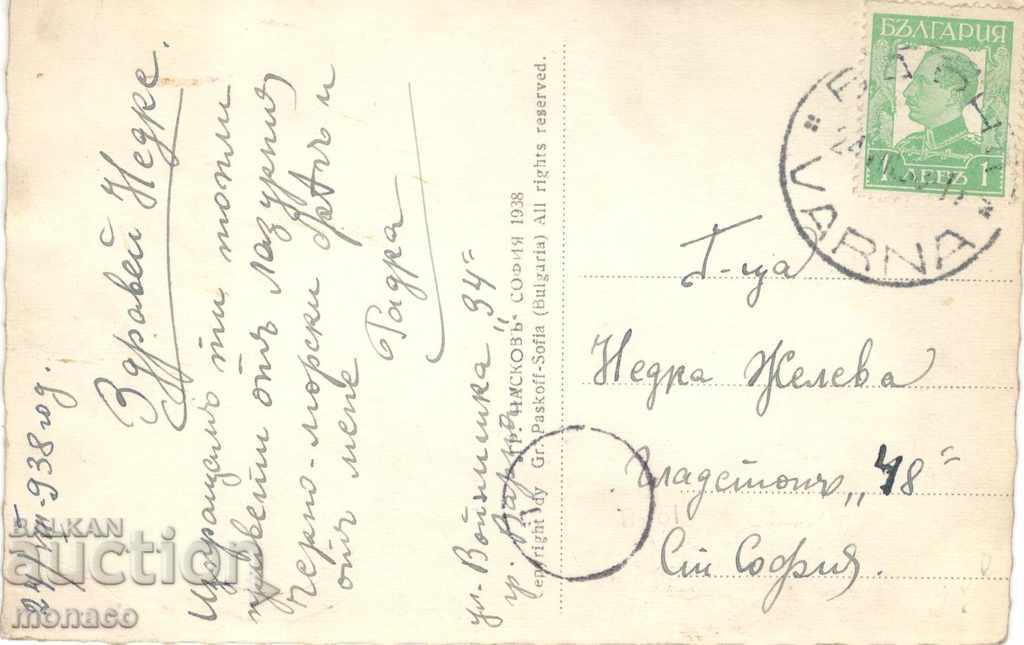 24/VII 938 год.
Здравей Недке.
Изпращамъ ти топли
привети отъ лазурния
Черно-морски брѣгъ и
отъ мене
Радка
ул. Войнишка „34“
гр. Варна
Гр. ПАСКОВЪ - СОФИЯ 1938
Copyright by Gr. Paskoff-Sofia (Bulgaria) All rights reserved.
БЪЛГАРИЯ
1 ЛЕВЪ 1
ВАРНА
VARNA
Г-ца
Недка Желева
Гладстонъ „48“
София.
BALKAN
auction
monaco